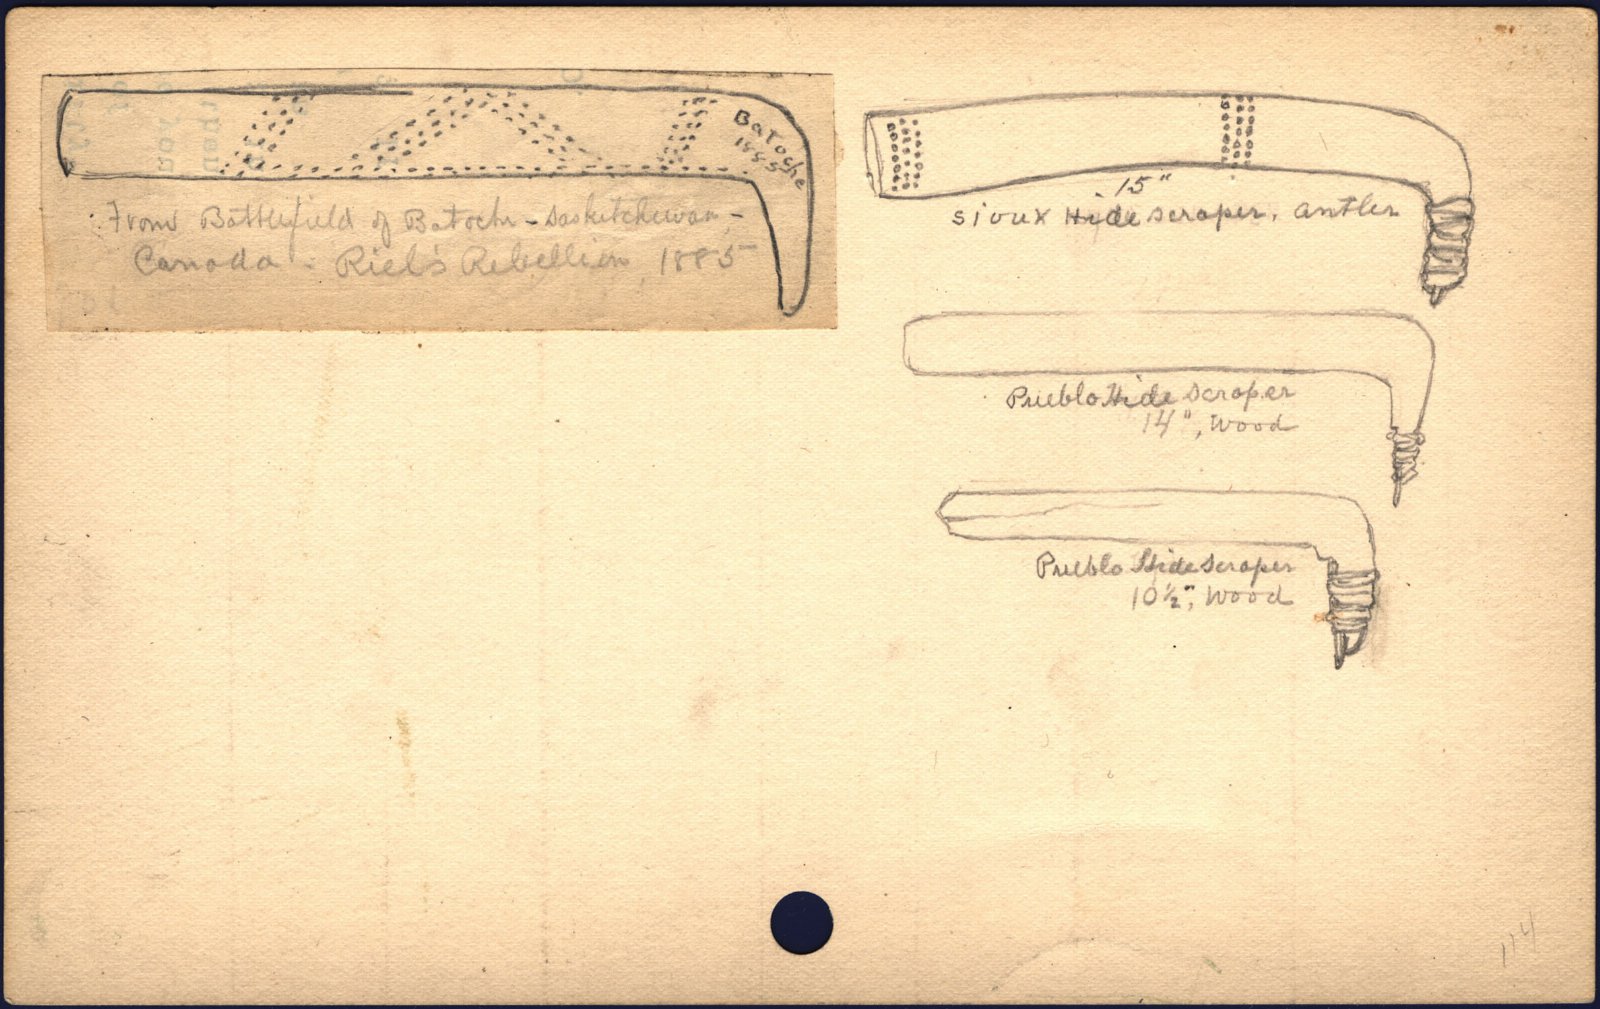 Batoche
1885
From Battlefield of Batoche - Saskatchewan -
Canada - Riel's Rebellion, 1885
15"
Sioux Hide scraper, antler
Pueblo Hide scraper
14", Wood
Pueblo Hide scraper
10½", Wood
114